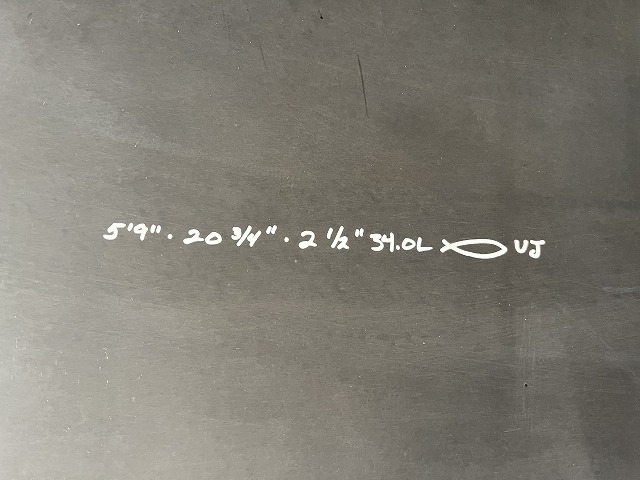 5'9" · 20 3/4" · 2 1/2" 34.0L VJ